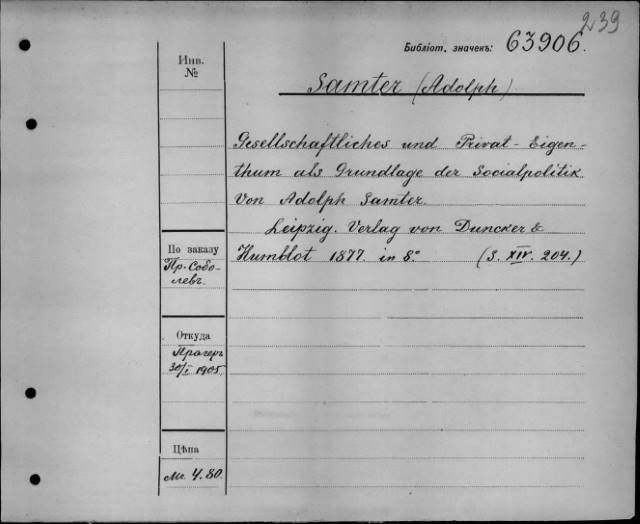 239
Библіот. значекъ: 63906.
Инв.
№
Samter (Adolph)
Gesellschaftliches und Privat-Eigen-
thum als Grundlage der Socialpolitik
Von Adolph Samter.
Leipzig. Verlag von Duncker &
Humblot 1877. in 8.° (S. XIV. 204.)
По заказу
Пр. Собо-
левъ.
Откуда
Прагеръ
30/I 1905.
Цѣна
Mr. 4.80.